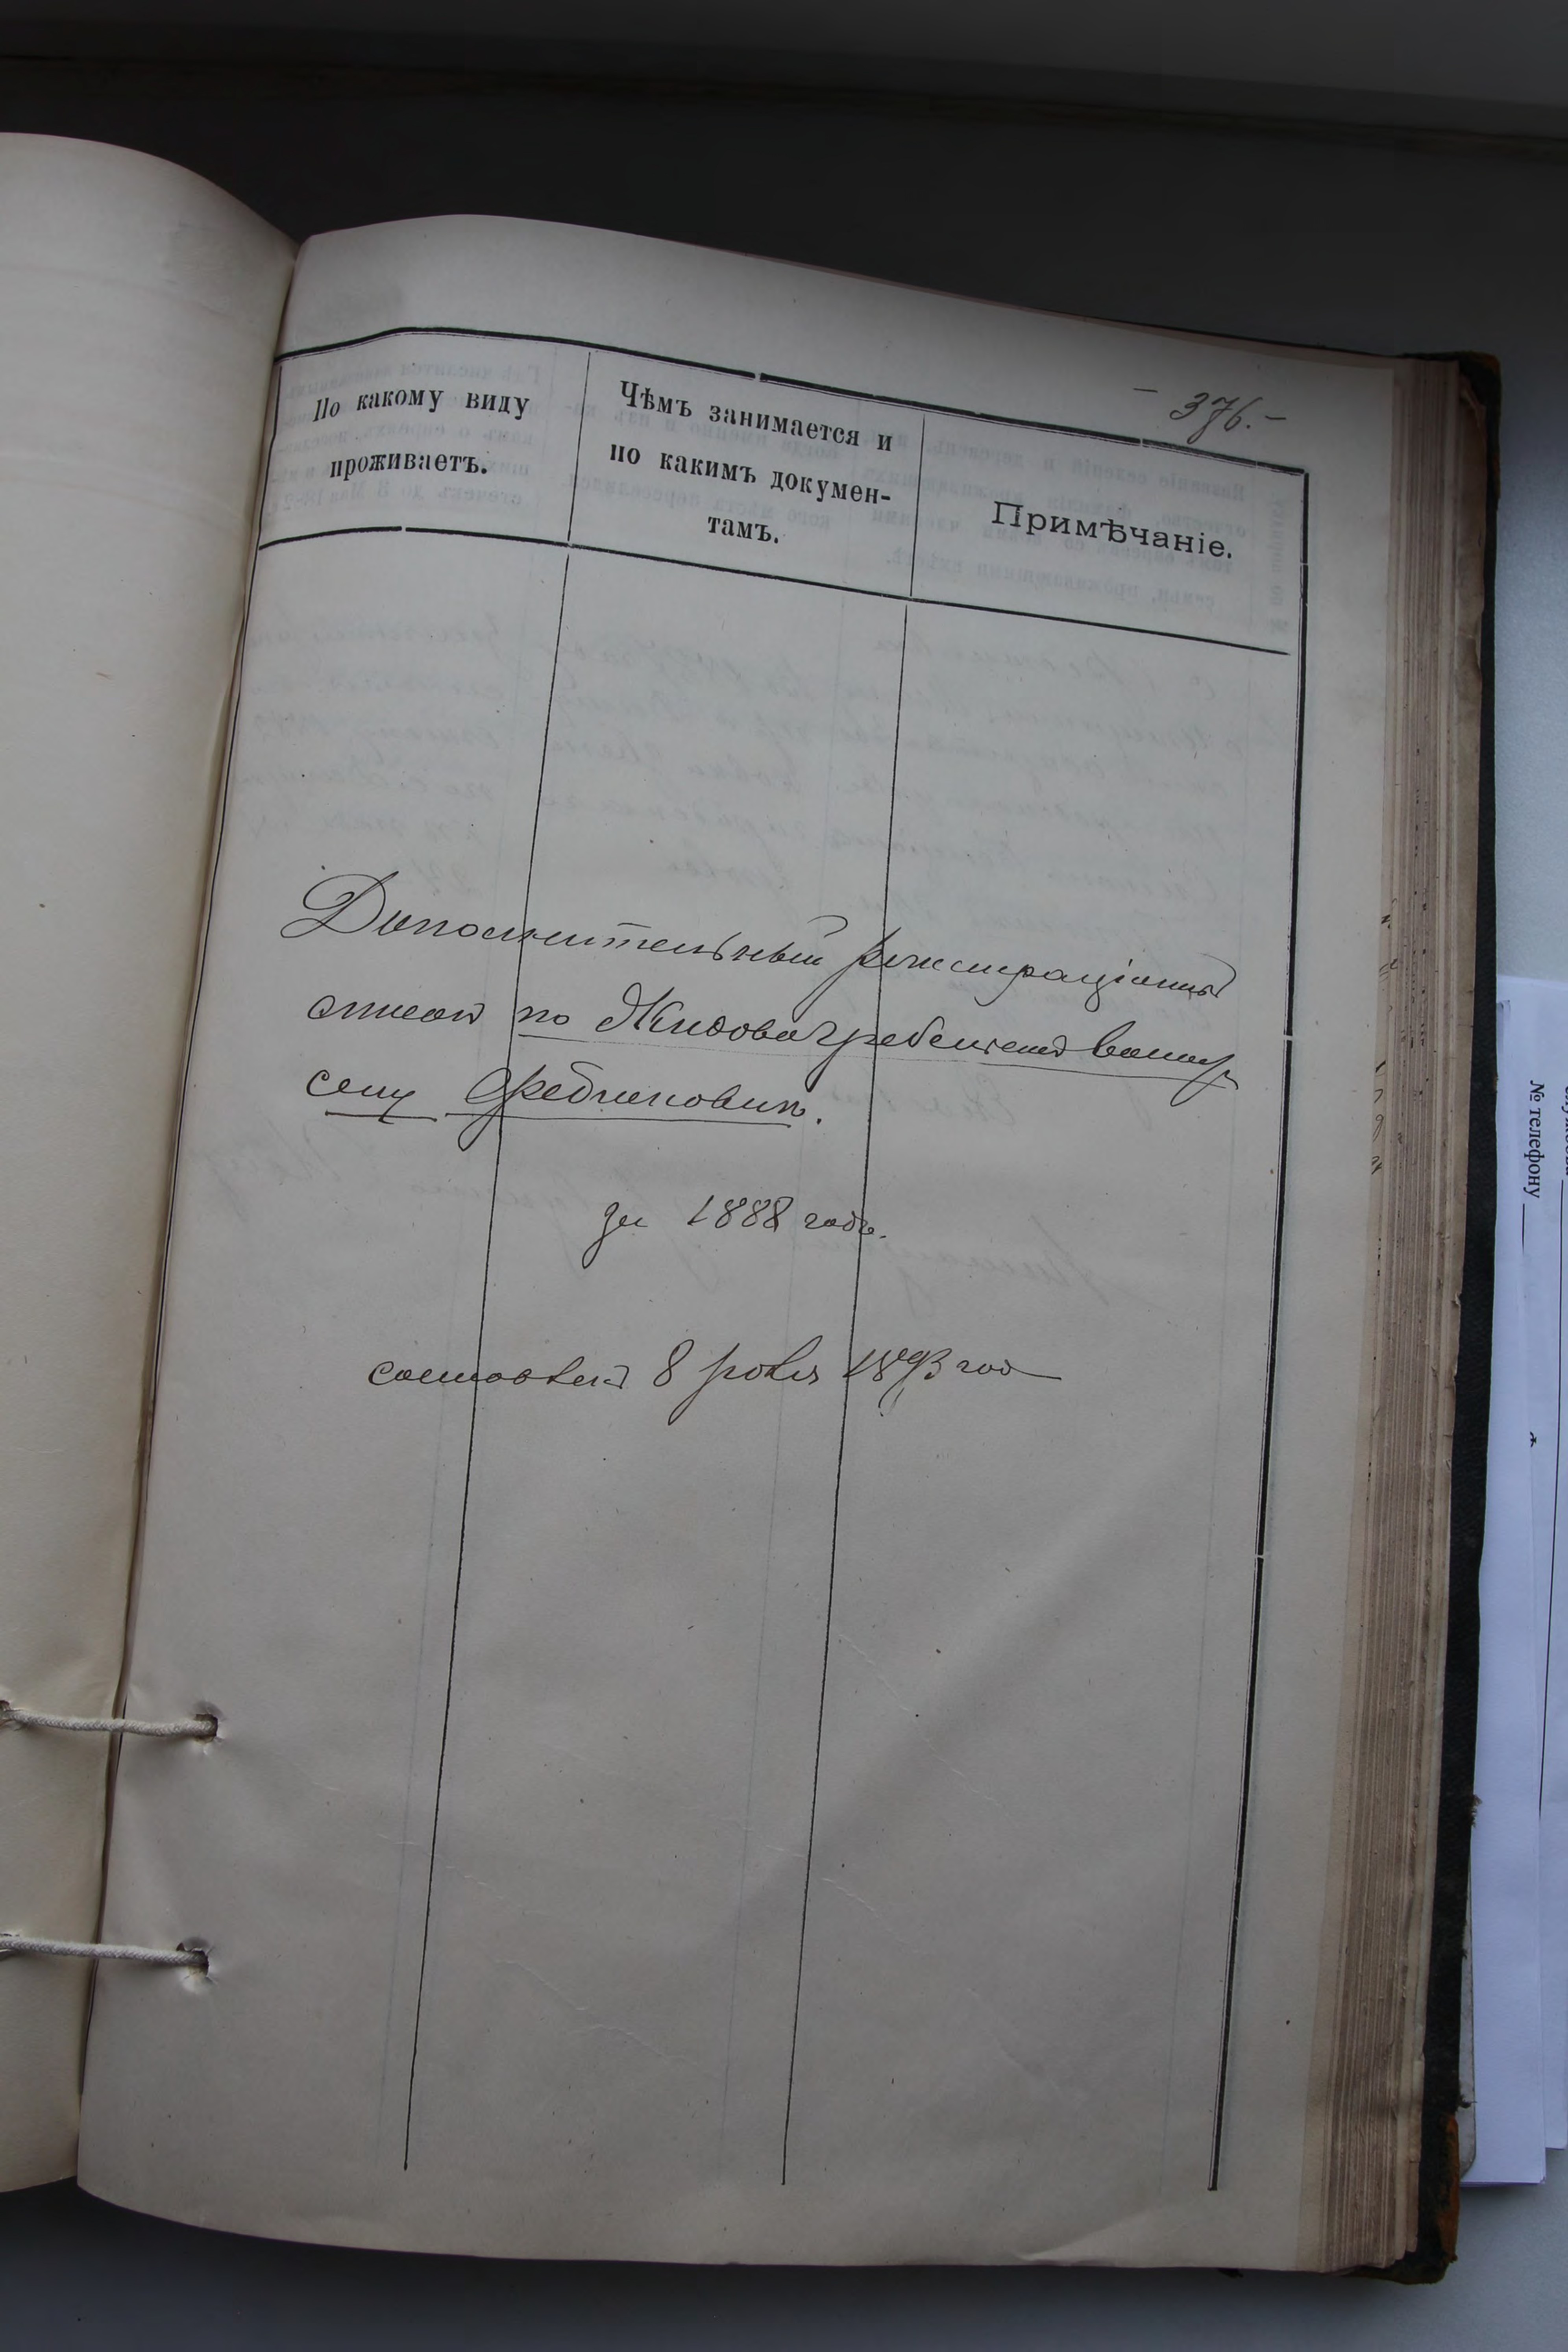 — 376. —
По какому виду
проживаетъ.
Чѣмъ занимается и
по какимъ докумен-
тамъ.
Примѣчаніе.
Дополнительный регистраціонный
списокъ по Жидовогребельской волости
селу
за 1888 годъ.
составленъ 8 1893 год
№ телефону